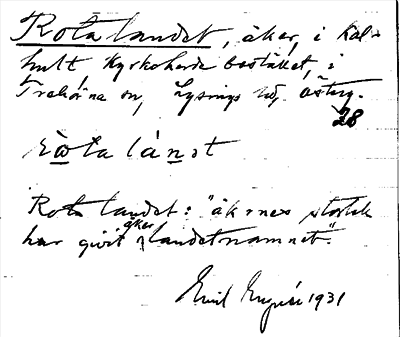 Rotalandet, åker, i Kal-
hult, Kyrkoherdebostället, i
Trehörna sn, Lysings hd, Österg.
28
rωta lánst
Rotalandet: "åkrnes storlek
har givit åker landetnamnet".
Emil 1931